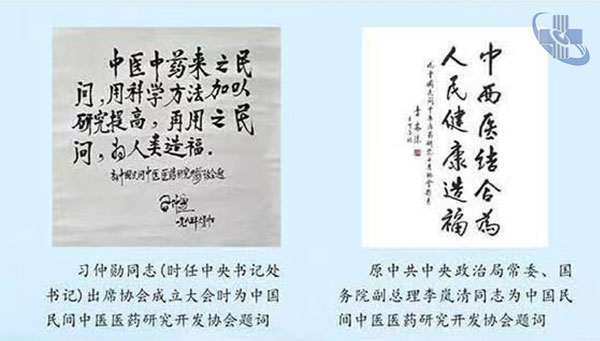 中医中药来之民
间，用科学方法加以
研究提高，再用之民
间，为人类造福．
为中国民间中医医药研究开发协会题
中西医结合为
人民健康造福
为中国民间中医医药研究开发协会题
李岚清
习仲勋同志(时任中央书记处
书记)出席协会成立大会时为中国
民间中医医药研究开发协会题词
原中共中央政治局常委、国
务院副总理李岚清同志为中国民
间中医医药研究开发协会题词